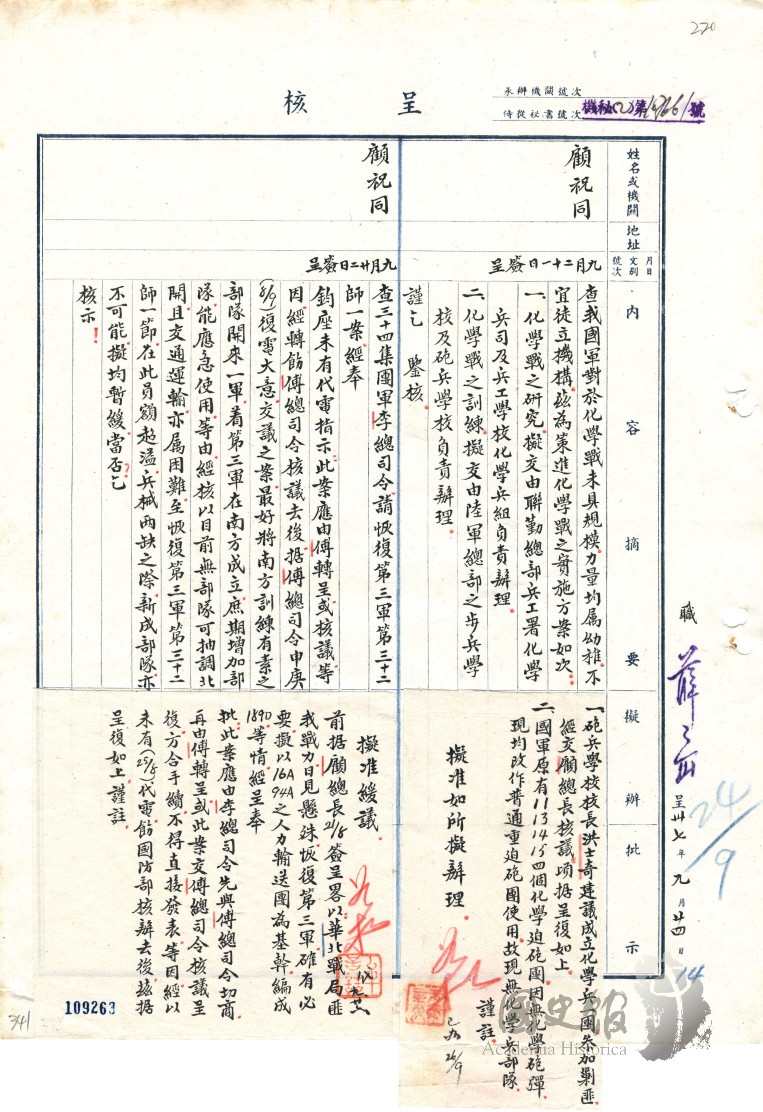 270
呈核
承辦機關號次
侍從祕書號次
機秘(乙)第 號
姓名或機關
地址
月日
文別
號次
內容摘要
擬辦
批示
職
薛岳
呈卅七年九月廿四日
24/9
14
顧祝同
九月二十一日簽呈
查我國軍對於化學戰未具規模力量均属幼稚不
宜徒立機構茲為策進化學戰之實施方案如次
一、化學戰之研究擬交由聯勤總部兵工署化學
兵司及兵工學校化學兵組負責辦理
二、化學戰之訓練擬交由陸軍總部之步兵學
校及砲兵學校負責辦理
謹乞 鑒核
一、砲兵學校校長洪士奇建議成立化學兵一團參加剿匪
經交顧總長核議頃據呈復如上
二、國軍原有11 13 14 15四個化學迫砲團因無化學砲彈
現均改作普通重迫砲團使用故現無化學兵部隊
謹註
擬准如所擬辦理
26/9
顧祝同
九月廿二日簽呈
查三十四集團軍李總司令請恢復第三軍第三十二
師一案經奉
鈞座未有代電指示此案應由傅轉呈或核議等
因經轉飭傅總司令核議去後据傅總司令申庚
(8/9)復電大意交議之案最好將南方訓練有素之
部隊開來一軍着第三軍在南方成立庶期增加部
隊能應急使用等由經核以目前無部隊可抽調北
開且交通運輸亦属困難至恢復第三軍第三十二
師一節在此員額超溢兵械两缺之際新成部隊亦
不可能擬均暫緩當否乞
核示！
擬准緩議
前据顧總長21/8簽呈畧以華北戰局匪
我戰力日見懸殊恢復第三軍確有必
要擬以16A 94A之人力輸送團為基幹編成
1890等情經呈奉
批此案應由李總司令先與傅總司令切商
再由傅轉呈或此案交傅總司令核議呈
復方合手續不得直接發表等因經以
未有(25/8)代電飭國防部核辦去後茲据
呈復如上謹註
109263
341
國史館
Academia Historica